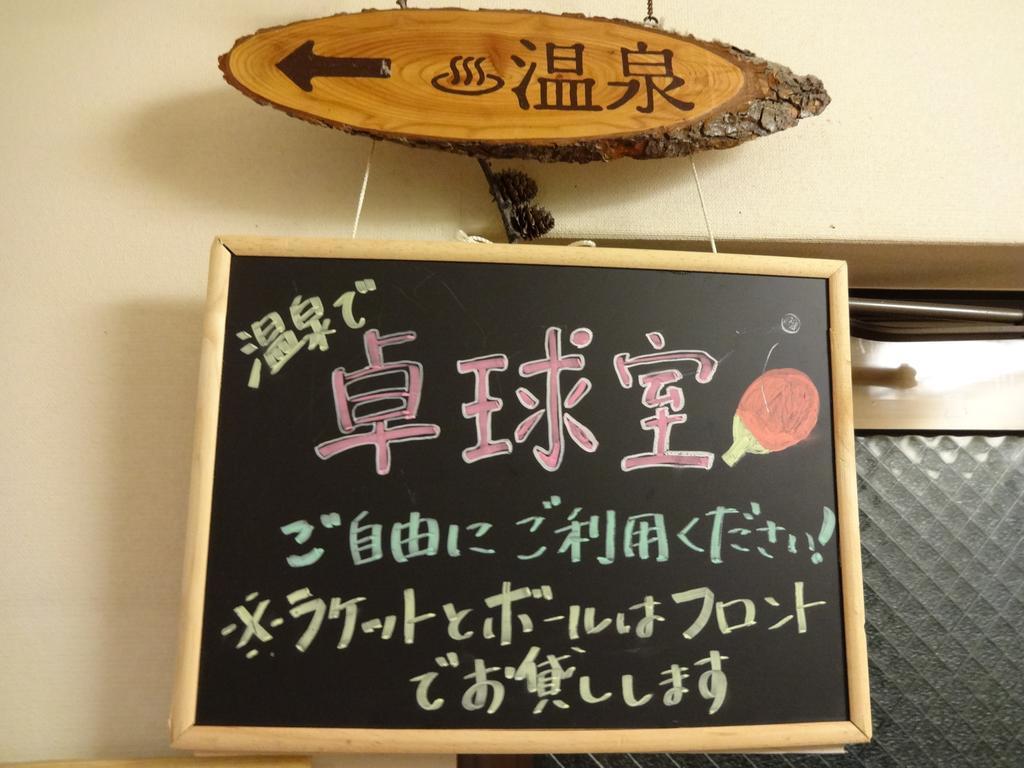 ← ♨温泉
温泉で
卓球室
ご自由にご利用ください!
※ラケットとボールはフロント
でお貸しします